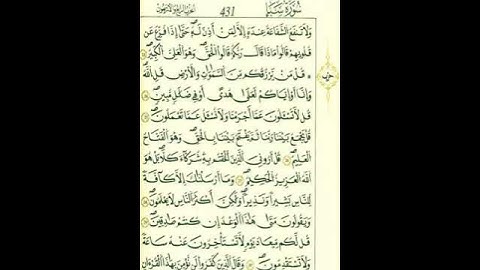 سُورَةُ سَبَإٍ 431 الجزء الثاني والعشرون
وَلَا تَنفَعُ الشَّفَاعَةُ عِندَهُ إِلَّا لِمَنْ أَذِنَ لَهُ حَتَّىٰ إِذَا فُزِّعَ عَن
قُلُوبِهِمْ قَالُوا مَاذَا قَالَ رَبُّكُمْ قَالُوا الْحَقَّ وَهُوَ الْعَلِيُّ الْكَبِيرُ
قُلْ مَن يَرْزُقُكُم مِّنَ السَّمَاوَاتِ وَالْأَرْضِ قُلِ اللَّهُ
حزب
وَإِنَّا أَوْ إِيَّاكُمْ لَعَلَىٰ هُدًى أَوْ فِي ضَلَالٍ مُّبِينٍ
قُل لَّا تُسْأَلُونَ عَمَّا أَجْرَمْنَا وَلَا نُسْأَلُ عَمَّا تَعْمَلُونَ
قُلْ يَجْمَعُ بَيْنَنَا رَبُّنَا ثُمَّ يَفْتَحُ بَيْنَنَا بِالْحَقِّ وَهُوَ الْفَتَّاحُ
الْعَلِيمُ قُلْ أَرُونِيَ الَّذِينَ أَلْحَقْتُم بِهِ شُرَكَاءَ كَلَّا بَلْ هُوَ
اللَّهُ الْعَزِيزُ الْحَكِيمُ وَمَا أَرْسَلْنَاكَ إِلَّا كَافَّةً
لِّلنَّاسِ بَشِيرًا وَنَذِيرًا وَلَٰكِنَّ أَكْثَرَ النَّاسِ لَا يَعْلَمُونَ
وَيَقُولُونَ مَتَىٰ هَٰذَا الْوَعْدُ إِن كُنتُمْ صَادِقِينَ
قُل لَّكُم مِّيعَادُ يَوْمٍ لَّا تَسْتَأْخِرُونَ عَنْهُ سَاعَةً
وَلَا تَسْتَقْدِمُونَ وَقَالَ الَّذِينَ كَفَرُوا لَن نُّؤْمِنَ بِهَٰذَا الْقُرْآنِ